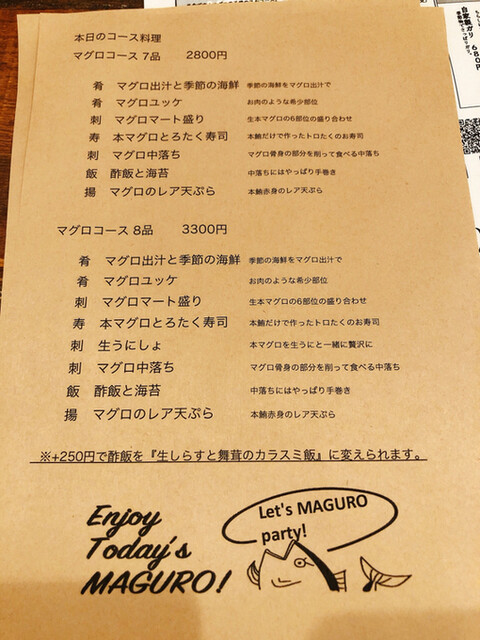 本日のコース料理
マグロコース 7品 2800円
肴 マグロ出汁と季節の海鮮 季節の海鮮をマグロ出汁で
肴 マグロユッケ お肉のような希少部位
刺 マグロマート盛り 生本マグロの6部位の盛り合わせ
寿 本マグロとろたく寿司 本鮪だけで作ったトロたくのお寿司
刺 マグロ中落ち マグロ骨身の部分を削って食べる中落ち
飯 酢飯と海苔 中落ちにはやっぱり手巻き
揚 マグロのレア天ぷら 本鮪赤身のレア天ぷら
マグロコース 8品 3300円
肴 マグロ出汁と季節の海鮮 季節の海鮮をマグロ出汁で
肴 マグロユッケ お肉のような希少部位
刺 マグロマート盛り 生本マグロの6部位の盛り合わせ
寿 本マグロとろたく寿司 本鮪だけで作ったトロたくのお寿司
刺 生うにしょ 本マグロを生うにと一緒に贅沢に
刺 マグロ中落ち マグロ骨身の部分を削って食べる中落ち
飯 酢飯と海苔 中落ちにはやっぱり手巻き
揚 マグロのレア天ぷら 本鮪赤身のレア天ぷら
※+250円で酢飯を『生しらすと舞茸のカラスミ飯』に変えられます。
Enjoy
Today's
MAGURO!
Let's MAGURO
party!
自家製ガリ 680円